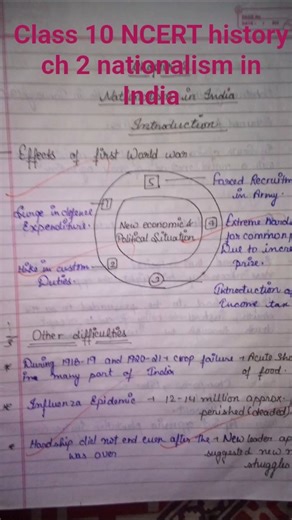 Class 10 NCERT history
ch 2 nationalism in
India
in India
Introduction
Effects of first World war
5
Forced Recruitm
in Army
1
Surge in defense
Expenditure.
New economic &
Political Situation
4
Extreme Hards
for common p
Due to incre
prise.
Hike in custom
Duties.
2
3
Introduction o
Income tax
Other difficulties
During 1918-19 and 1920-21 → crop failure → Acute Sho
in many part of India
of food.
Influenza Epidemic → 12-14 million approx.
perished (deaded)
Hardship did not end even after the → New leader ap
was over
suggested new m
struggles